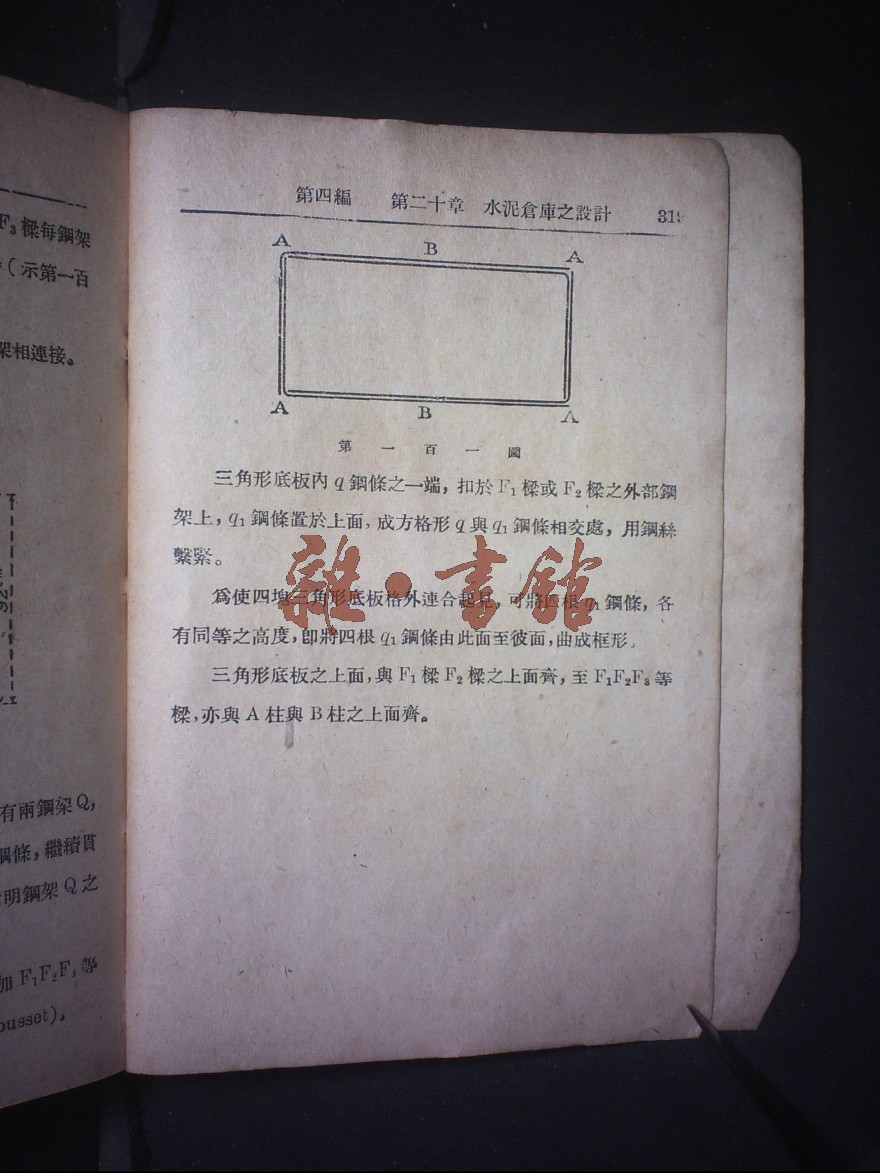 F₃樑每鋼架
(示第一百
架相連接。
有兩鋼架Q,
鋼條,繼續貫
明鋼架Q之
加F₁F₂F₃等
ousset),
第四編 第二十章 水泥倉庫之設計 319
A B A
A B A
第一百一圖
三角形底板內q鋼條之一端,扣於F₁樑或F₂樑之外部鋼
架上,q₁鋼條置於上面,成方格形q與q₁鋼條相交處,用鋼絲
繫緊。
爲使四塊三角形底板格外連合起見,可將四根q₁鋼條,各
有同等之高度,卽將四根q₁鋼條由此面至彼面,曲成框形。
三角形底板之上面,與F₁樑F₂樑之上面齊,至F₁F₂F₃等
樑,亦與A柱與B柱之上面齊。
雜·書館